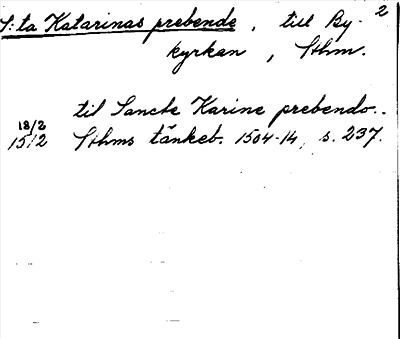 2
S:ta Katarinas prebende, till By-
kyrkan, Sthm.
til Sancte Karine prebendo..
18/2
1512 Sthms tänkeb. 1504-14, s. 237.